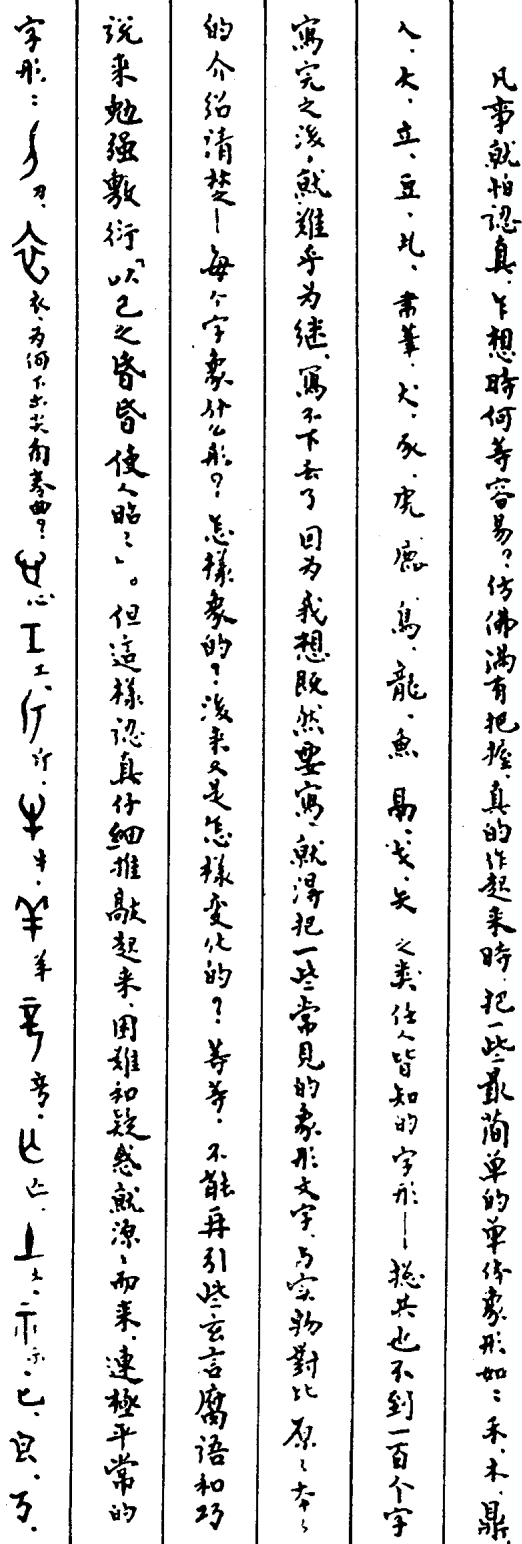 凡事就怕認真，乍想時何等容易？仿佛滿有把握，真的作起来時，把一些最简单的单体象形如：禾、木、鼎、
人、大、立、豆、丮、聿、犬、豕、虎、鹿、鳥、龍、魚、易、戈、矢之类任人皆知的字形——總共也不到一百个字
寫完之後，就難乎为继，寫不下去了。因为我想既然要寫，就得把一些常見的象形文字，与实物對比，原原本本
的介绍清楚——每个字象什么形？怎樣象的？後来又是怎樣变化的？等等，不能再引些玄言腐語和巧
説来勉强敷衍「以己之昏昏使人昭昭」。但這樣認真仔細推敲起来，困難和疑惑就源源而来，連極平常的
字形：刀、衣，为何下出尖角卷曲？心、工、行、牛、羊、亡、土、示、